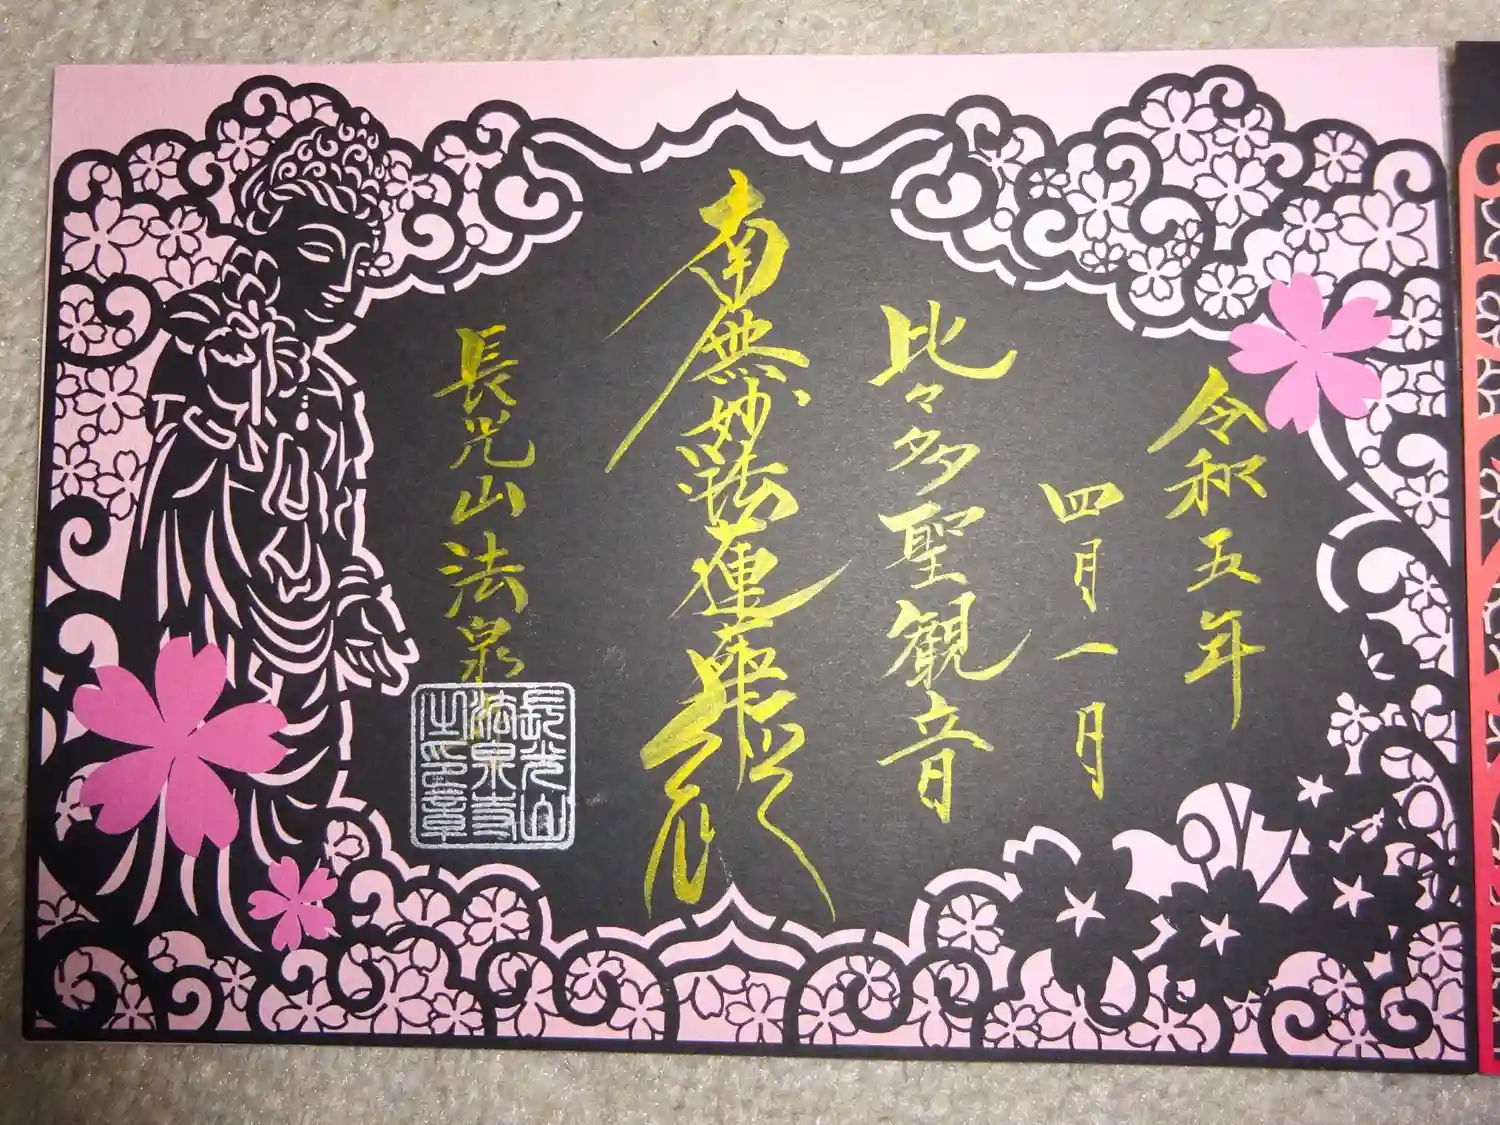 令和五年
四月一日
比々多聖観音
南無妙法蓮華経
長光山法泉
長光山
法泉寺
之印章